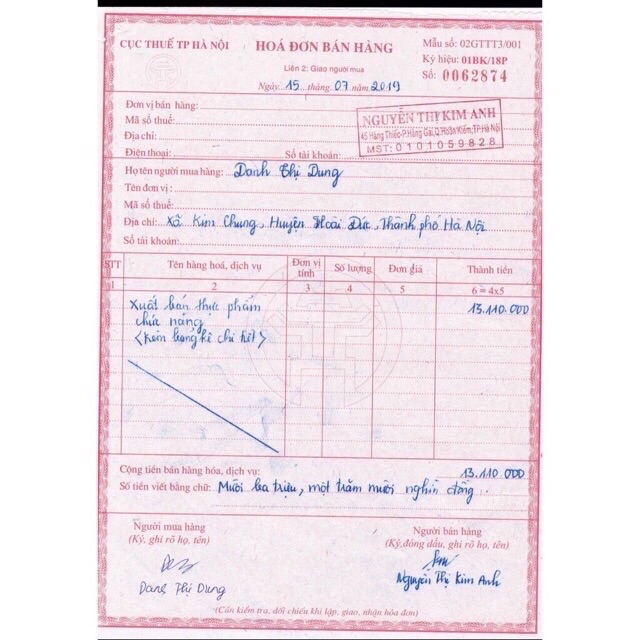 CỤC THUẾ TP HÀ NỘI
HOÁ ĐƠN BÁN HÀNG
Mẫu số: 02GTTT3/001
Ký hiệu: 01BK/18P
Liên 2: Giao người mua
Số: 0062874
Ngày 15 tháng 07 năm 2019
Đơn vị bán hàng:
Mã số thuế:
Địa chỉ:
Điện thoại: Số tài khoản:
NGUYỄN THỊ KIM ANH
45 Hàng Thiếc-P.Hàng Gai,Q.Hoàn Kiếm,TP.Hà Nội
MST: 0101059828
Họ tên người mua hàng: Danh Thị Dung
Tên đơn vị:
Mã số thuế:
Địa chỉ: Xã Kim Chung, Huyện Hoài Đức, Thành phố Hà Nội
Số tài khoản:
STT Tên hàng hoá, dịch vụ Đơn vị tính Số lượng Đơn giá Thành tiền
1 2 3 4 5 6 = 4x5
Xuất bán thực phẩm 13.110.000
chức năng
<Kèm bảng kê chi tiết>
Cộng tiền bán hàng hóa, dịch vụ: 13.110.000
Số tiền viết bằng chữ: Mười ba triệu, một trăm mười nghìn đồng.
Người mua hàng
(Ký, ghi rõ họ, tên)
Danh Thị Dung
Người bán hàng
(Ký,đóng dấu, ghi rõ họ, tên)
Nguyễn Thị Kim Anh
(Cần kiểm tra, đối chiếu khi lập, giao, nhận hóa đơn)